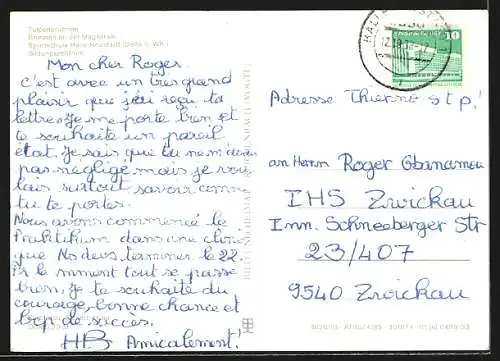 Tulpenbrunnen
Brunnen an der Magistrale
Bildungszentrum
Mon cher Roger
C'est avec un tres grand
plaisir que j'ai reçu ta
lettre. Je me porte bien et
te souhaite un pareil
état. Je sais que tu ne m'as
pas négligé mais je vou-
lais surtout savoir comme
tu te portes.
Nous avons commencé le
Praktikum dans une clinique
que Nous devons terminer le 22.
Pr le moment tout se passe
bien, Je te souhaite du
courage, bonne chance et
bcp de succès.
HB Amicalement!
HALLE
10
Adresse Thienne stp!
an Herrn Roger Gbanamou
IHS Zwickau
Inn. Schneeberger Str
23/407
9540 Zwickau